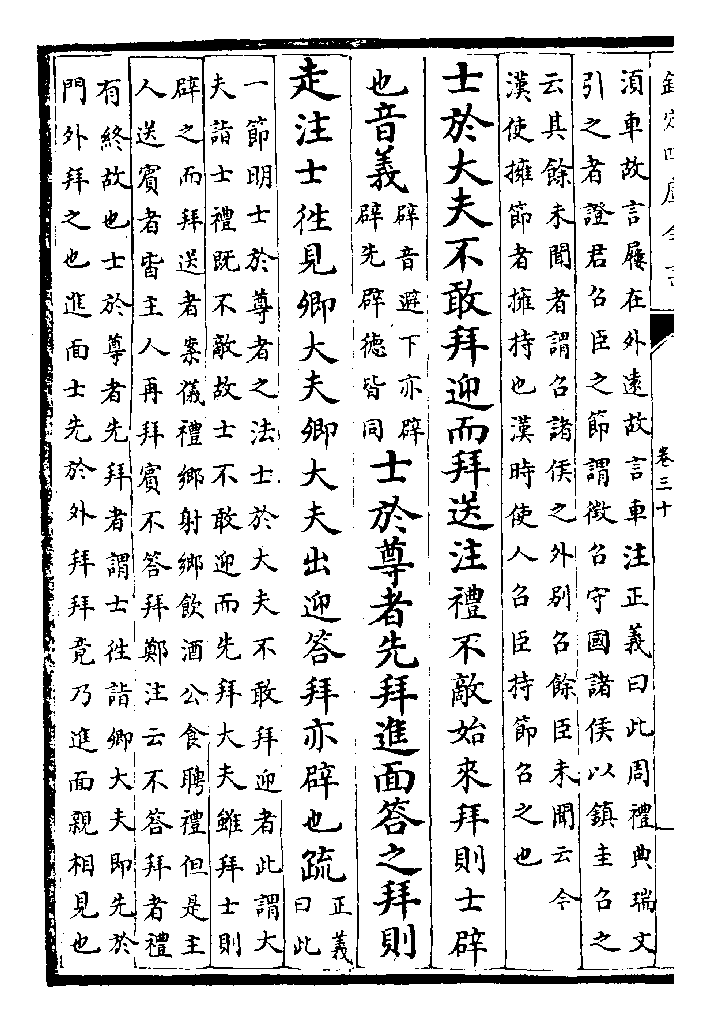 欽定四庫全書 卷三十
須車故言屨在外遠故言車注正義曰此周禮典瑞文
引之者證君召臣之節謂徴召守國諸侯以鎮圭召之
云其餘未聞者謂召諸侯之外别召餘臣未聞云今
漢使擁節者擁持也漢時使人召臣持節召之也
士於大夫不敢拜迎而拜送注禮不敵始來拜則士辟
也音義 辟音避下亦辟
辟先辟德皆同
士於尊者先拜進面答之拜則
走注士徃見卿大夫卿大夫出迎答拜亦辟也疏 正義
曰此
一節明士於尊者之法士於大夫不敢拜迎者此謂大
夫詣士禮既不敵故士不敢迎而先拜大夫雖拜士則
辟之而拜送者案儀禮鄉射鄉飲酒公食聘禮但是主
人送賓者皆主人再拜賓不答拜鄭注云不答拜者禮
有終故也士於尊者先拜者謂士徃詣卿大夫即先於
門外拜之也進面士先於外拜拜竟乃進面親相見也